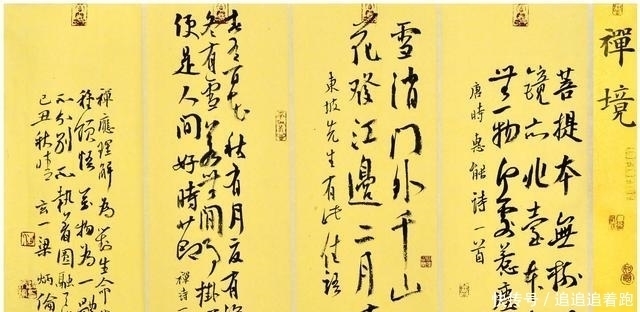 禪境
菩提本無樹
鏡亦非臺本
無一物何處惹塵
唐時惠能詩一首
雪消門外千山
花發江邊二月
東坡先生有此佳語
春有百花秋有月夏有
冬有雪若無閒事掛
便是人間好時節
禪詩一
禪應理解為對生命
種頓悟萬物為一
不分別不執着圓融
己丑秋
玄一梁炳倫
快传号/追追追着跑